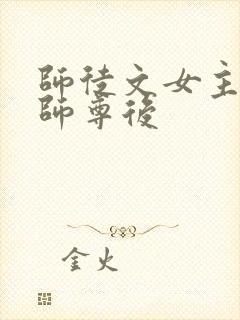 師徒文女主
師尊後
金火